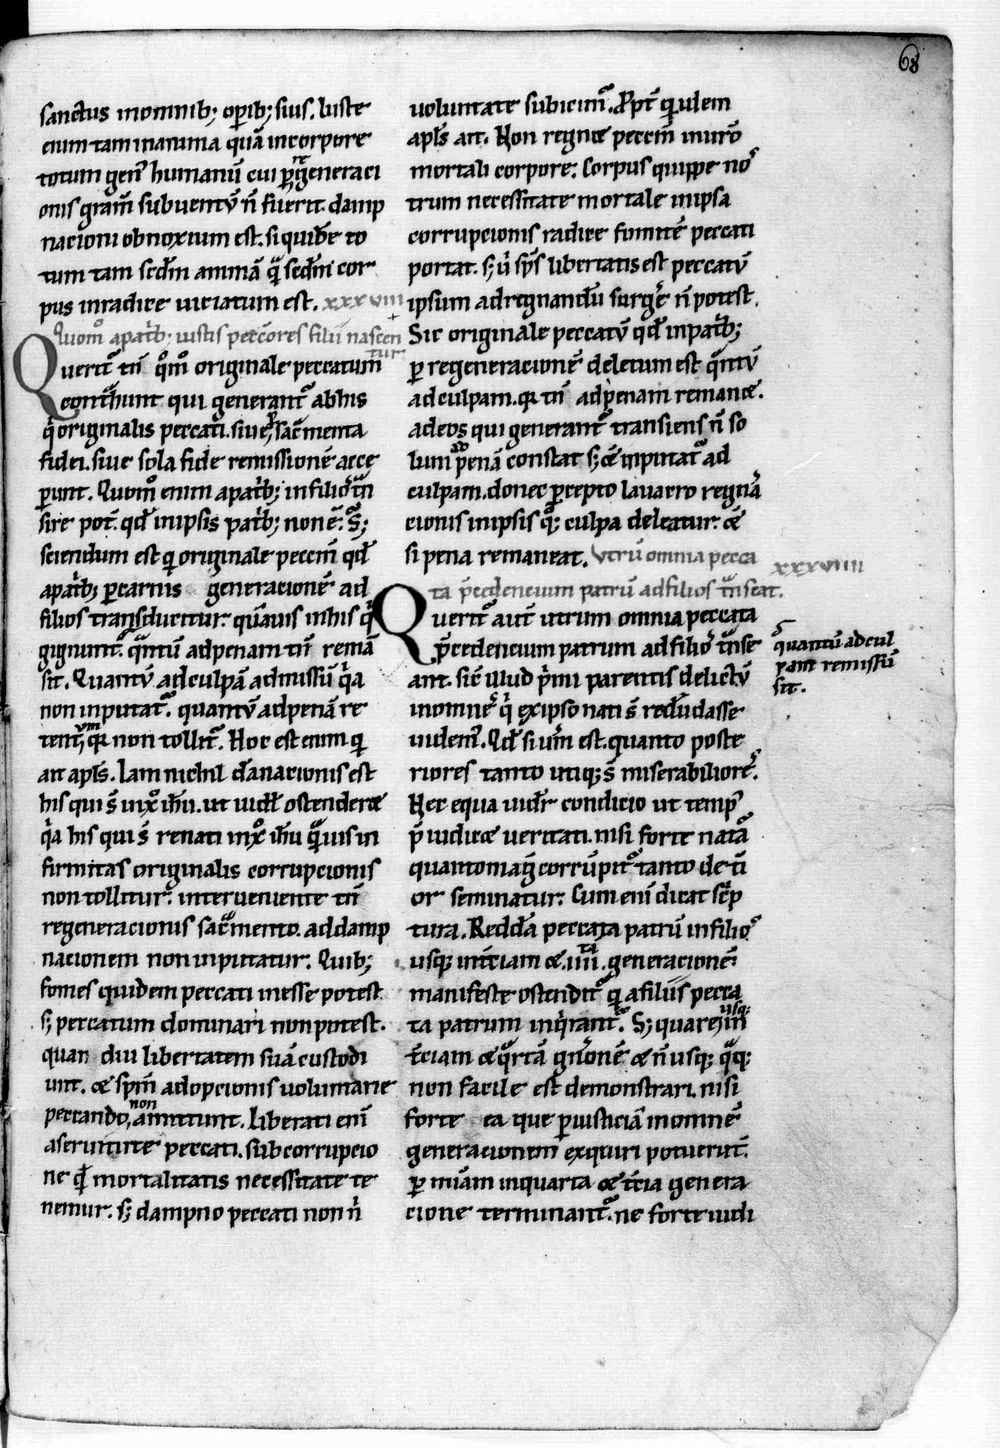 68
sanctus in omnib; opib; suis. Iuste
enim tam in anima quā in corpore
totum gen' humanū cui p regeneraci
onis grām subuentū n̄ fuerit. damp
nacioni obnoxium est. si quidē to
tum tam scdm animā q̄ scdm cor
pus in radice uiciatum est. xxxviii
Quom̊ a pat'b; iustis peccōres filii nascen
tur
Querit̄ tn̄ q̊m originale peccatum
cont̄hunt qui generant̄ ab his
q̄ originalis peccati. siue p sac̄menta
fidei. siue sola fide remissionē acce
perunt. Quom̊ enim a pat'b; in filios t̄n
sire pot̄. qd̄ in ipsis pat'b; non ē. S;
sciendum est q originale peccm̄ qd̄
a pat'b; p carnis generacionē ad
filios transducitur. quāuis in his q̄
gignunt̄. q̄ntū ad penam tn̄ remā
sit. Quantū ad culpā admissū q̄a
non inputat̄. quantū ad penā re
tentum q̄ non tollit̄. Hoc est enim q
ait apls̄. Iam nichil dānacionis est
his qui s̄ in xp̊ ihū. ut uidel ostenderet
q̄a his qui s̄ renati in xp̊ ihū q̄uis in
firmitas originalis corrupcionis
non tollitur. interueniente tn̄
regeneracionis sac̄mento. ad damp
nacionem non inputatur. Quib;
fomes quidem peccati inesse potest
s; peccatum dominari non potest.
quan diu libertatem suā custodi
unt. et spm̄ adopcionis uoluntarie
peccando, non amittunt. Liberati enī
a seruitute peccati. sub corrupcio
ne q̄ mortalitatis necessitate te
nemur. s; dampno peccati non n̄
uoluntate subicim̄. Ppt̄ q uidem
apls̄ ait. Non regnet peccm̄ in ur̄o
mortali corpore. Corpus quippe nos
trum necessitate mortale in ipsa
corrupcionis radice fomitē peccati
portat. s; u' sps̄ libertatis est peccatū
ipsum ad regnandū surgē n̄ potest.
Sic originale peccatū qd̄ in pat'b;
p regeneracionē deletum est q̄ntū
ad culpam. q tn̄ ad penam remanet.
ad eos qui generant̄ transiens n̄ so
lum ad penā constat s; et inputat̄ ad
culpam. donec percepto lauacro regnā
cionis in ipsis q; culpa deleatur. et
si pena remaneat. Vtrū omnia pecca
ta p̄cedencium patrū ad filios t̄nseat. xxxviiii
Querit̄ aut̄ utrum omnia peccata
p̄cedencium patrum ad filios t̄nse
ant. sic̄ illud p̄mi parentis delictū
in omnes q̄ ex ipso nati s̄ redūdasse
uidem̄. Qd̄ si uerū est. quanto poste
riores tanto utiq; s̄ miserabiliores.
Hec equa uidr̄ condicio ut temp'
p̄iudicet ueritati. nisi forte natā
quanto mag corrūpit̄ tanto deti
or seminatur. Cum enī dicat sc̄p
tura. Reddā peccata patrū in filios
usq; in t̄ciam et iiii. ta generacionē
manifeste ostendit̄ q a filiis pecca
ta patrum inq̄rant̄. S; quare usq; in
t̄ciam et q̄rtā gn̄onē et n̄ usq; q̄q;
non facile est demonstrari. nisi
forte ea que p iusticiā in omnē
generacionem exquiri potuerit.
p miām in quarta et t̄cia genera
cione terminant̄. ne forte uidi
quantū ad cul
pam remissū
sit.